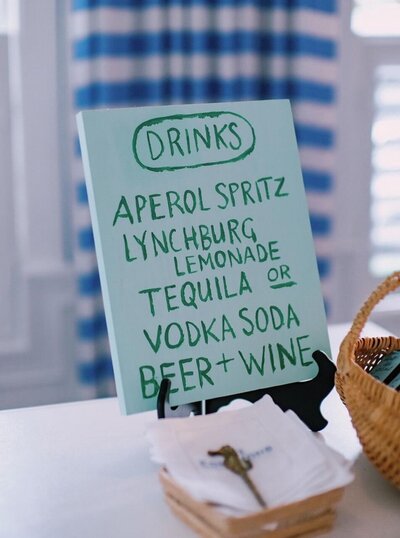 DRINKS
APEROL SPRITZ
LYNCHBURG
LEMONADE
TEQUILA OR
VODKA SODA
BEER + WINE